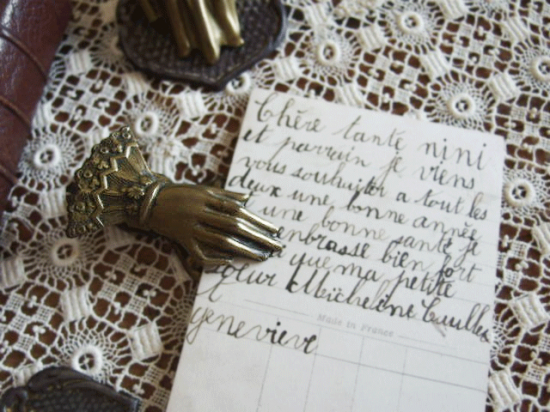 Chère tante nini
et parrain je viens
vous souhaiter a tout les
deux une bonne année
et une bonne santé je
enbrasse bien fort
que ma petite
sœur Micheline
Genevieve
Made in France